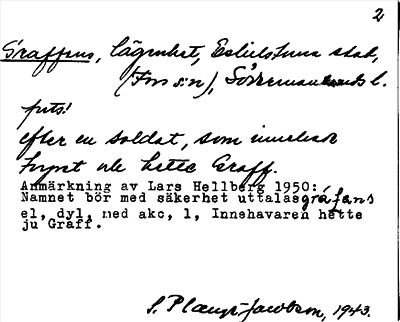 2
Graffens, lägenhet, Eskilstuna stad,
(Fors s:n), Södermanlands l.
puts!
efter en soldat, som innehade
torpet och hette Graff.
Anmärkning av Lars Hellberg 1950:
Namnet bör med säkerhet uttalas gráfans
el. dyl. med akc. 1, Innehavaren hette
ju Graff.
S. Jacobson, 1943.